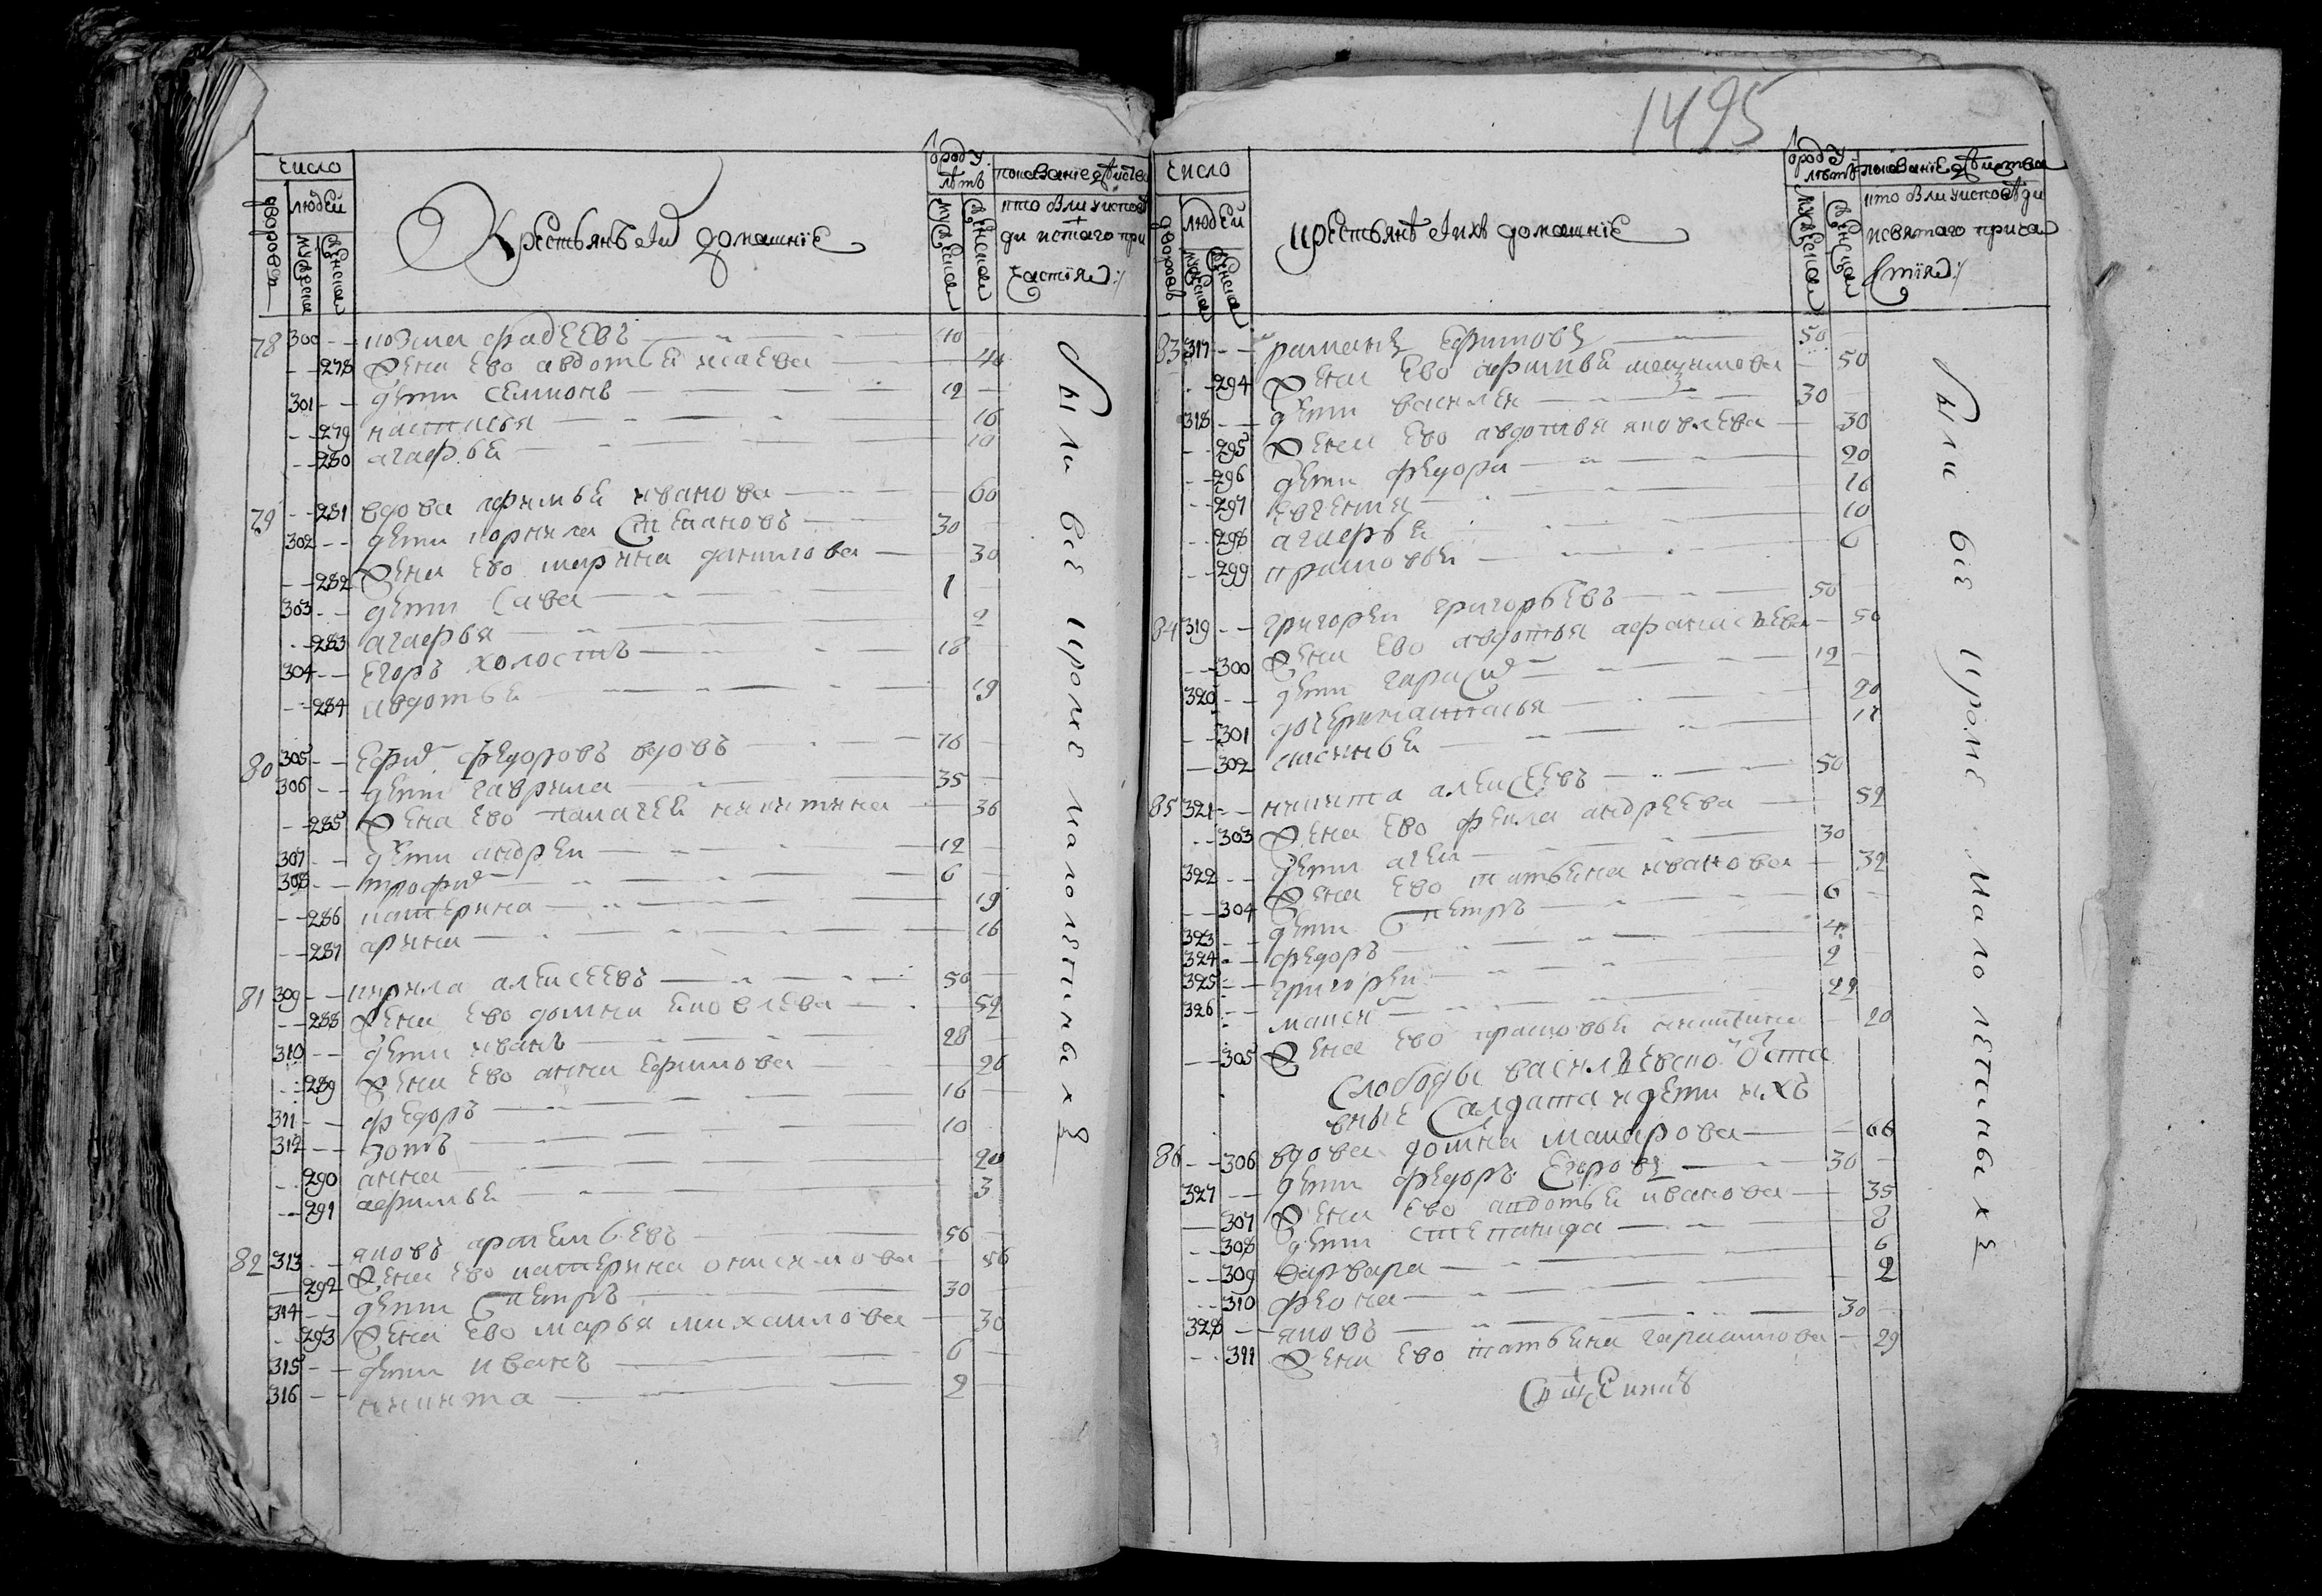 число
дворовъ
людей
мужеска
женска
Крестьянѣ и их домашніе
от роду лѣтъ
мужеска
женска
показаніе дѣиства
кто был у исповѣ
ди и с̃таго при
частия:/
78 300 -- козма фадеевъ 40
-- 278 жена ево авдотья исаева 40
301 -- дѣти семионъ 12
-- 279 насталья 16
-- 280 агафья 10
79 -- 281 вдова афимья иванова 60
302 -- дѣти корнила степановъ 30
-- 282 жена ево марина данилова 30
303 -- дѣти сава 1
-- 283 агафья 2
304 -- егоръ холостъ 18
-- 284 авдотья 19
80 305 -- ефим федоровъ вдовъ 76
306 -- дѣти гаврила 35
-- 285 жена ево палагея никитина 36
307 -- дѣти андреи 12
308 -- трофим 6
-- 286 катерина 19
-- 287 арина 16
81 309 -- кирила алексеевъ 50
-- 288 жена ево домна яковлева 52
310 -- дѣти иванъ 28
-- 289 жена ево анна ефимова 26
311 -- федоръ 16
312 -- зотъ 10
-- 290 анна 20
-- 291 афимья 3
82 313 -- яковъ артемьевъ 56
-- 292 жена ево катерина онисимова 56
314 -- дѣти петръ 30
-- 293 жена ево марья михаилова 30
315 -- дѣти иванъ 6
316 -- никита 2
были все кроме малолетныхъ
1495
число
дворовъ
людей
мужеска
женска
крестьянѣ и ихъ домашніе
от роду лѣтъ
мужеска
женска
показание дѣиства
кто был у исповѣди
и святаго прича
стия:/
83 317 -- раманъ ефимовъ 50
-- 294 жена ево афимья максимова 50
318 -- дѣти василеи 30
-- 295 жена ево авдотья яковлева 30
-- 296 дѣти федора 20
-- 297 евгения 16
-- 298 агафья 10
-- 299 прасковья 6
84 319 -- григореи григорьевъ 50
-- 300 жена ево авдотья афанасьева 50
320 -- дѣти гарасим 12
-- 301 дочери насталья 20
-- 302 аксинья 17
85 321 -- никита алексеевъ 50
-- 303 жена ево фекла андреева 52
322 -- дѣти агеи 30
-- 304 жена ево татьяна иванова 32
323 -- дѣти петръ 6
324 -- федоръ 4
325 -- григореи 2
326 -- максим 22
-- 305 жена ево прасковья никитина 20
Слободы василъевско отста
вные салдата и дѣти ихъ
86 -- 306 вдова домна макарова 66
327 -- дѣти федоръ егоровъ 30
-- 307 жена ево авдотья иванова 35
-- 308 дѣти степанида 8
-- 309 варвара 6
-- 310 феона 2
328 -- яковъ 30
-- 311 жена ево татьяна гарасимова 29
Священикъ
были все кроме малолетныхъ